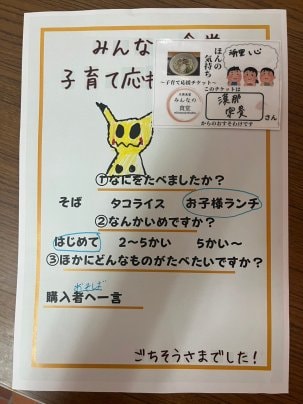 みんな
子育て応
ほんの
気持ち
~子育て応援チケット~
このチケットは
みんなの
食堂
漢那
さん
からのおすそわけです
①なにをたべましたか?
そば タコライス お子様ランチ
②なんかいめですか?
はじめて 2~5かい 5かい~
③ほかにどんなものがたべたいですか?
購入者へ一言
ごちそうさまでした!